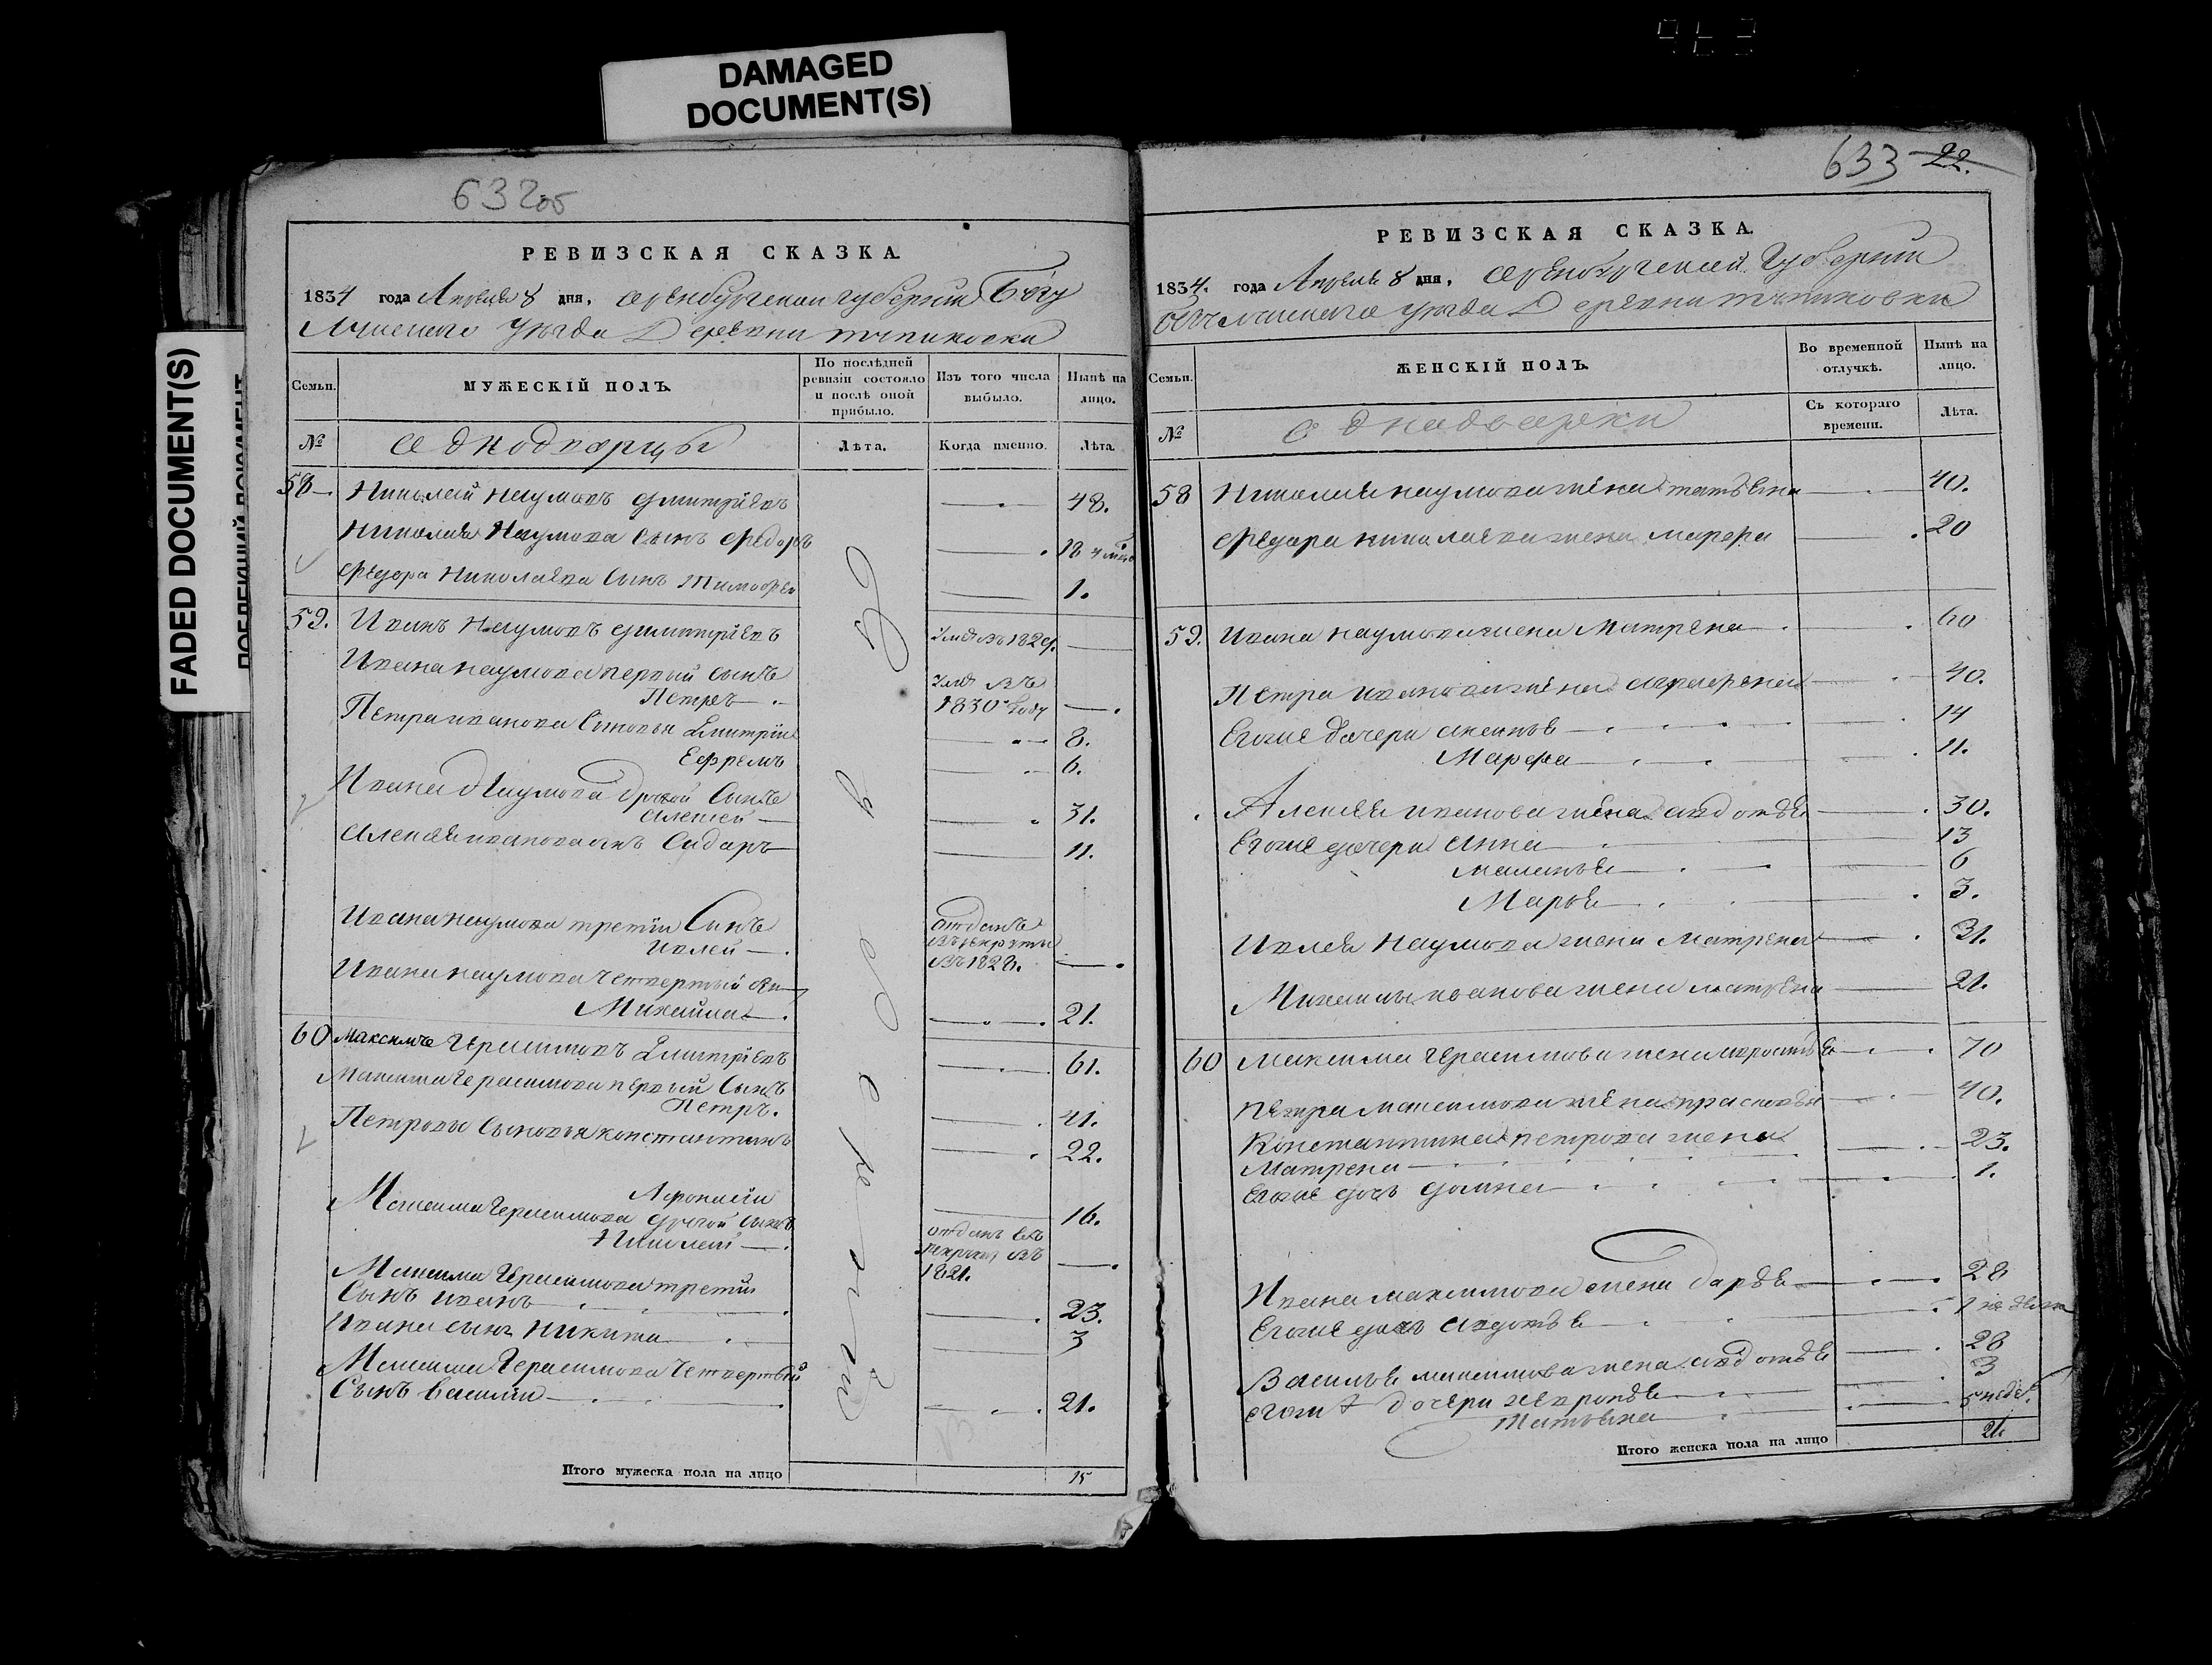 DAMAGED
DOCUMENT(S)
FADED DOCUMENT(S)
632об
РЕВИЗСКАЯ СКАЗКА.
1834 года Апреля 8 дня, Оренбургской губернии Бугу
Лминского уезда Деревни
Семьи.
МУЖЕСКІЙ ПОЛЪ.
По послѣдней ревизіи состояло и послѣ оной прибыло.
Изъ того числа выбыло.
Нынѣ на лицо.
№
Однодворцы
Лѣта.
Когда именно.
Лѣта.
58 Николай Наумовъ Дмитріевъ 48.
Николая Наумова Сынъ Федоръ 18
Федора Николаева Сынъ Тимофей 1.
59. Иванъ Наумовъ Дмитріевъ
Ивана Наумова первый Сынъ
Петръ 1830 году
Петра Иванова Сыновья Дмитрій 8.
Ефремъ 6.
Ивана Наумова другой Сынъ
Алексей 31.
Алексея Иванова сынъ Сидаръ 11.
Ивана Наумова третий Сынъ отданъ
Ивлей въ рекруты
въ 1828.
Ивана Наумова четвертый
Михайла 21.
60 Максимъ Герасимовъ Дмитріевъ 61.
Максима Герасимова первый Сынъ
Петръ. 41.
Петровы Сыновья Константинъ 22.
Афонасій 16.
Максима Герасимова другой сынъ
Николай отданъ въ рекруты въ 1821.
Максима Герасимова третій
Сынъ Иванъ 23.
Ивана сынъ Никита 3
Максима Герасимова четвертый
Сынъ Василій 21.
Итого мужеска пола на лицо 15
633 22.
РЕВИЗСКАЯ СКАЗКА.
1834. года Апреля 8 дня, Оренбургской Губернии
уезда Деревни
Семьи.
ЖЕНСКІЙ ПОЛЪ.
Во временной отлучкѣ.
Нынѣ на лицо.
№
Однодворки
Съ котораго времени.
Лѣта.
58 Николая Наумова жена Татьяна 40.
Федора Николаева жена Марфа 20
59. Ивана Наумова жена Матрена 60
Петра Иванова жена 40.
Егоже дочери 14
Марфа 11.
Алексея Иванова жена Авдотья 30.
Егоже дочери Анна 13
Маланья 6
Марья 3.
Ивлея Наумова жена Матрена 31.
Михаилы Иванова жена Матрена 21.
60 Максима Герасимова жена 70
Петра Максимова жена Прасковья 40.
Константина Петрова жена
Матрена 23.
Егоже дочь Домна 1.
Ивана Максимова жена Дарья 28
Егоже дочь Авдотья
Василья Максимова жена Авдотья 28
Егоже дочери 3
Татьяна 5 недел.
Итого женска пола на лицо 21.